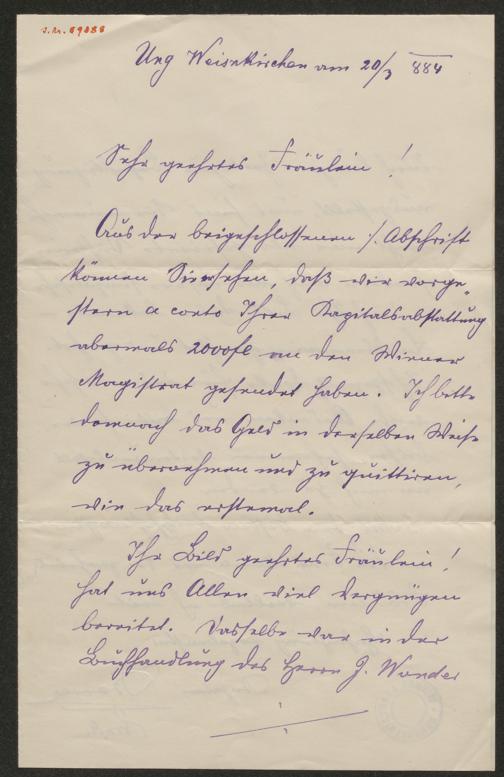 J.N. 69088
Ung Weisskirchen am 20/3 884
Sehr geehrtes Fräulein!
Aus der beigeschlossenen ./. Abschrift
können Sie ersehen, daß wir vorge-
stern a conto Ihrer Kapitalsabstattung
abermals 2000fl an den Wiener
Magistrat gesendet haben. Ich bitte
demnach das Geld in derselben Weise
zu übernehmen und zu quittiren,
wie das erstemal.
Ihr Bild geehrtes Fräulein!
hat uns Allen viel Vergnügen
bereitet. Dasselbe war in der
Buchhandlung des Herrn J. Wunder